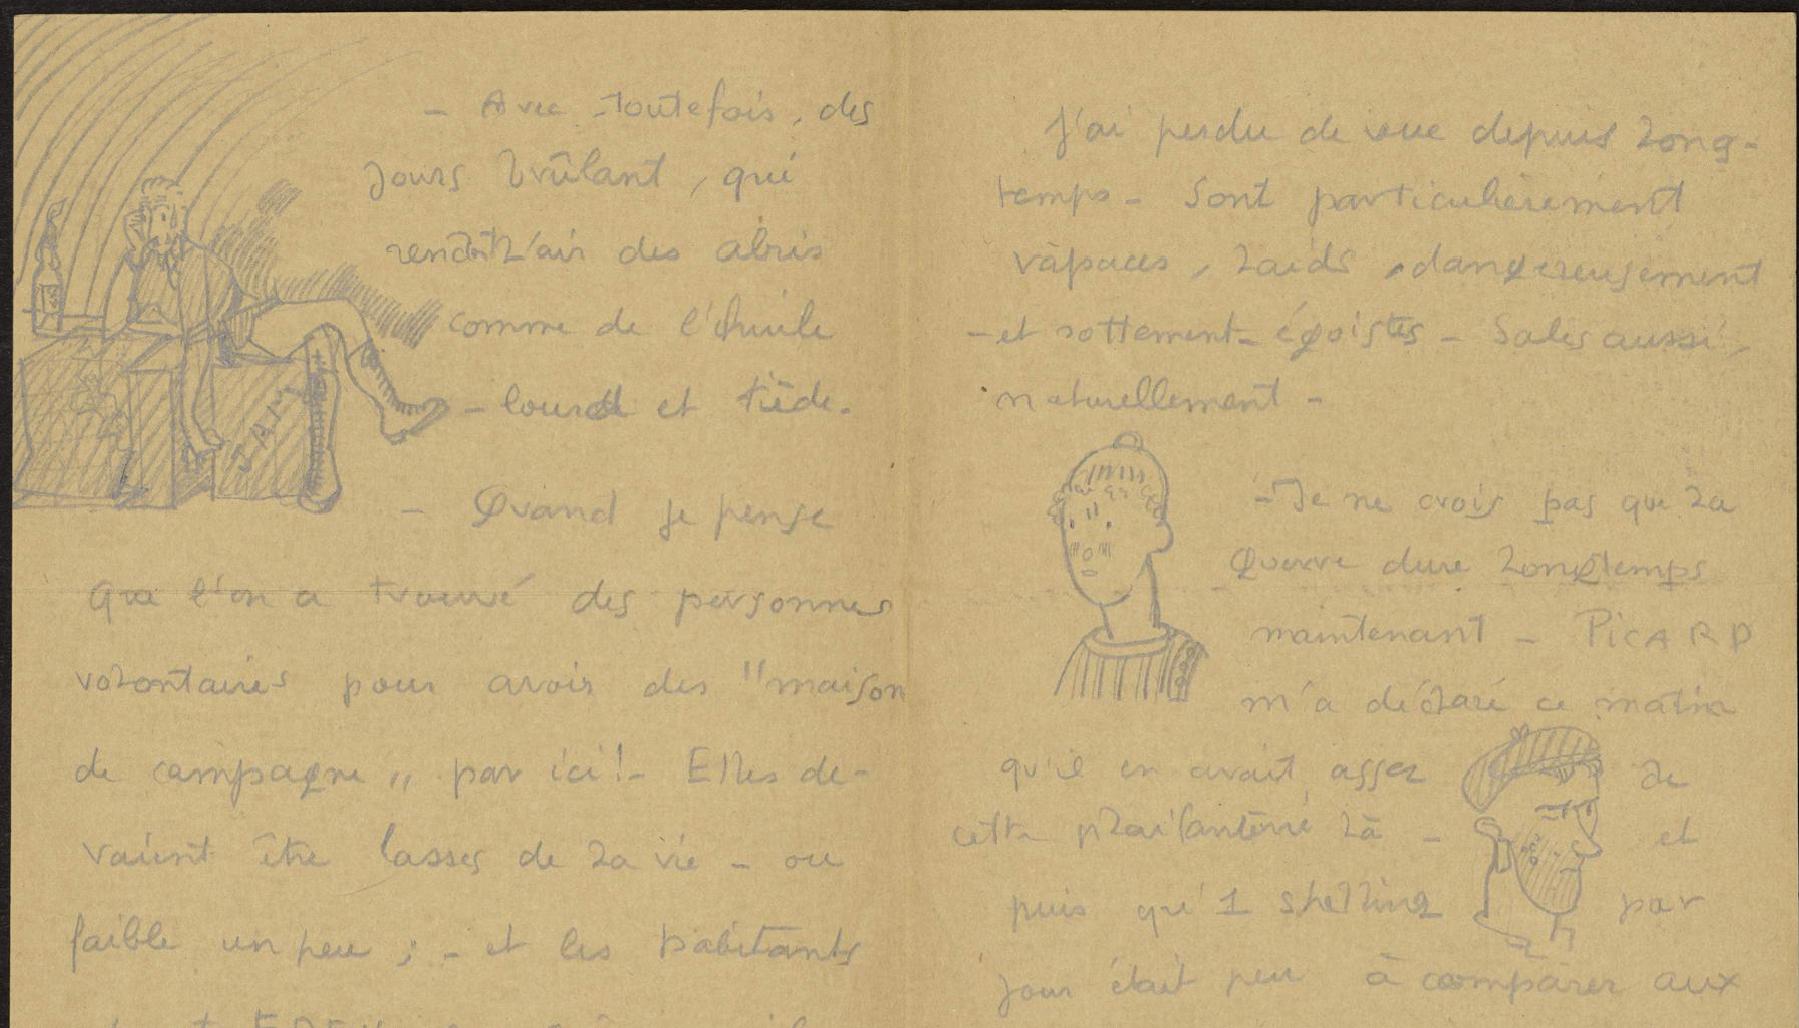 - Avec toutefois, des
jours brûlant, qui
rendent l'air des abris
comme de l'huile
- lourde et tiède.
- Quand je pense
que l'on a trouvé des personnes
volontaires pour avoir des "maison
de campagne" par ici! - Elles de-
vaient être lasses de la vie - ou
faible un peu ; - et les habitants
J'ai perdu de vue depuis long-
temps - Sont particulièrement
rapaces, laids, dangereusement
- et sottement - égoïstes - Sales aussi,
naturellement -
- Je ne crois pas que la
guerre dure longtemps
maintenant - PICARD
m'a déclaré ce matin
qu'il en avait assez de
cette plaisanterie là - et
puis qu'1 shelling par
jour était peu à comparer aux